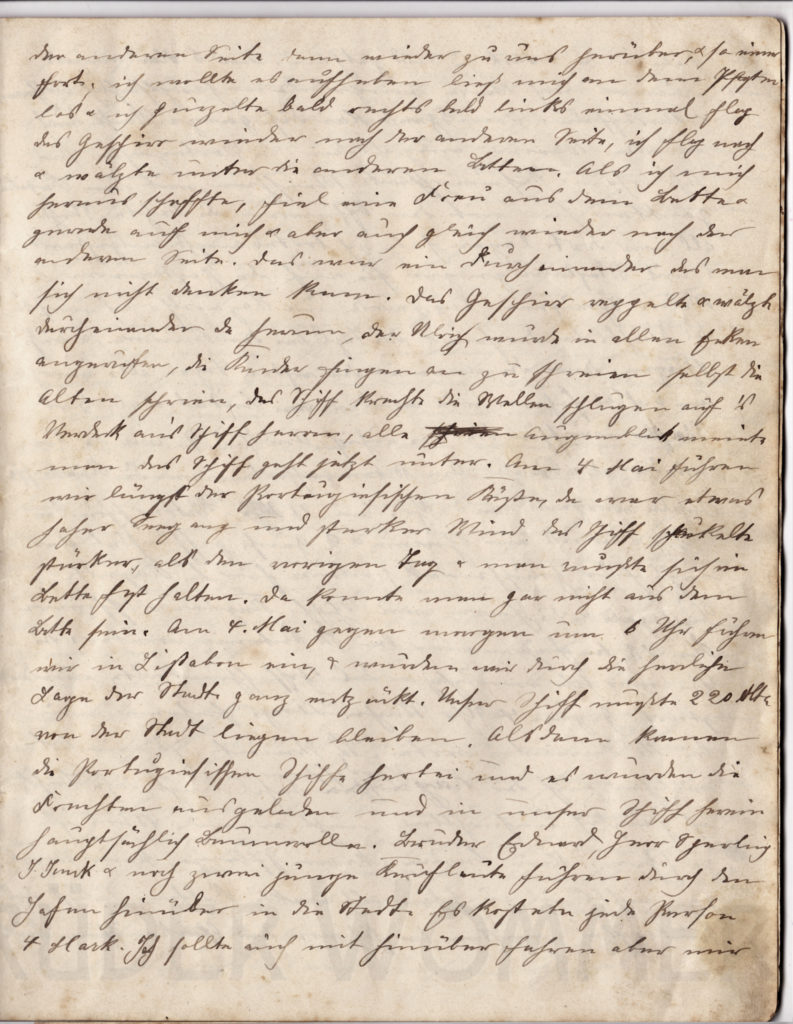 der anderen Seite dann wieder zu uns herüber, & so immer
fort. ich wollte es aufheben ließ mich an dem Pfosten
los & ich purzelte bald rechts bald links einmal flog
das Geschirr wieder nach der anderen Seite, ich flog nach
& wälzte unter die anderen Betten. Als ich mich
heraus schaffte, fiel eine Frau aus dem Bette
gerade auf mich & aber auch gleich wieder nach der
anderen Seite. Das war ein Durcheinander das man
sich nicht denken kann. Das Geschirr & wälzte
durcheinander da herum, der Ulrich wurde in allen Ecken
angerufen, die Kinder fingen an zu schreien selbst die
Alten schrien, das Schiff krachte die Wellen schlugen auf's
Verdeck an's Schiff heran, alle Augenblick meinte
man das Schiff geht jetzt unter. Am 4 Mai führen
wir längst der Portugiesischen Küste, da war etwas
hoher Seegang und starker Wind das Schiff schaukelte
stärker, als den vorigen Tag & man mußte sich im
Bette fest halten. Da konnte man gar nicht aus dem
Bette sein. Am 4. Mai gegen morgen um 6 Uhr führen
wir in Lissabon ein, & wurden wir durch die herliche
Lage der Stadt ganz entzückt. Unser Schiff mußte 220 Mtr
von der Stadt liegen bleiben. Alsdann kamen
die Portugiesischen Schiffe herbei und es wurden die
Frachten ausgeladen und in unser Schiff herein
hauptsächlich Baumwolle. Bruder Eduard, Herr Sperling
& noch zwei junge Kaufleute führen durch den
Hafen hinüber in die Stadt. Es kostete jede Person
4 Mark. Ich sollte auch mit hinüber fahren aber mir